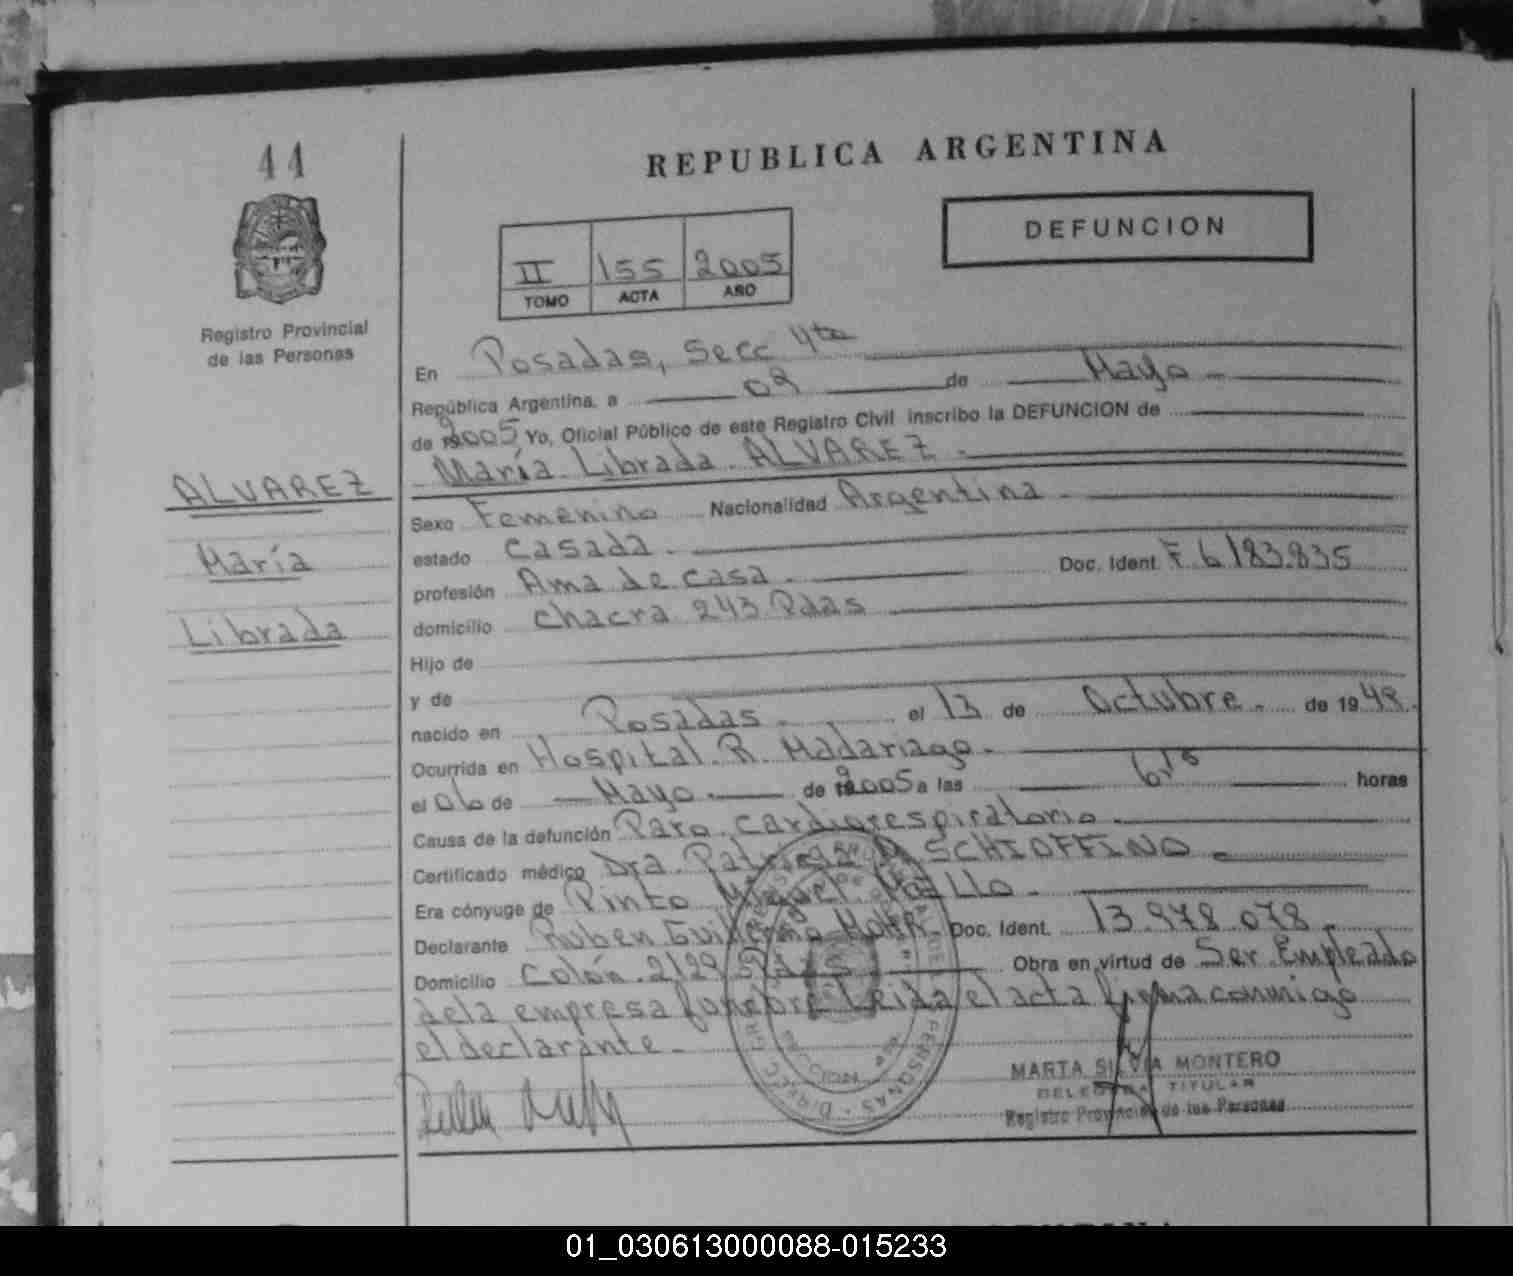 44
REPUBLICA ARGENTINA
DEFUNCION
II 155 2005
TOMO ACTA AÑO
Registro Provincial
de las Personas
ALVAREZ
María
Librada
En Posadas, Secc 4ta
República Argentina, a 09 de Mayo
de 2005 Yo, Oficial Público de este Registro Civil inscribo la DEFUNCION de
María Librada ALVAREZ.
Sexo Femenino Nacionalidad Argentina
estado Casada.
profesión Ama de casa. Doc. Ident. F. 6.183.835
domicilio Chacra 243 Pdas
Hijo de
y de
nacido en Posadas. el 13 de Octubre. de 1948.
Ocurrida en Hospital R. Madariaga.
el 06 de Mayo. de 2005 a las 6,15 horas
Causa de la defunción Paro cardiorespiratorio.
Certificado médico Dra. Patricia SCHIOFFINO
Era cónyuge de Pinto Miguel
Declarante Ruben Guillermo Doc. Ident. 13.978.078
Domicilio Colón 2129 Pdas Obra en virtud de Ser Empleado
de la empresa fúnebre Leida el acta firma conmigo
el declarante.
MARTA SILVIA MONTERO
DELEGADA TITULAR
Registro Provincial de las Personas
01_030613000088-015233